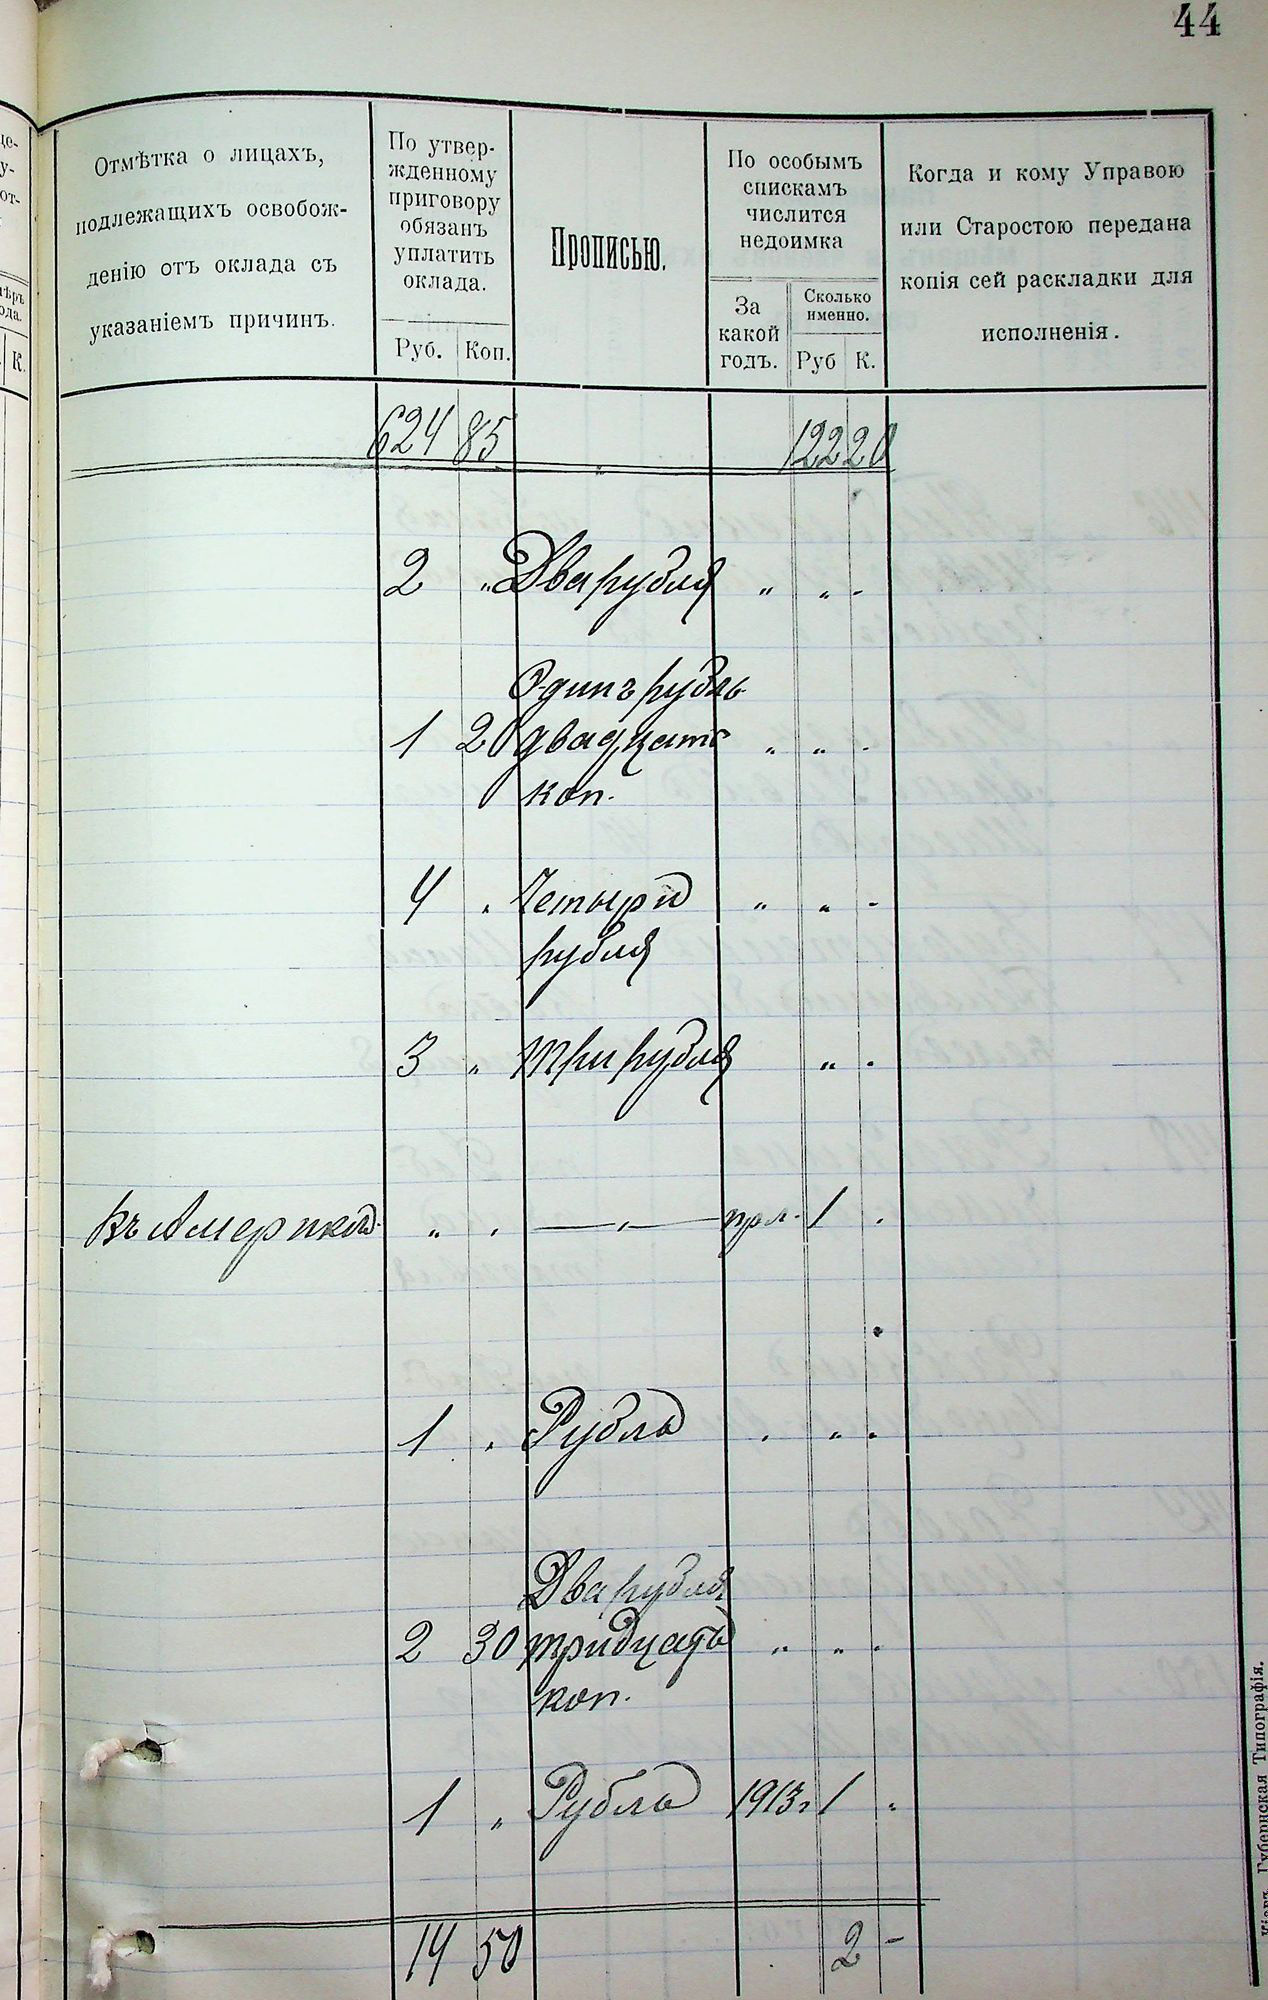 44
Отмѣтка о лицахъ,
подлежащихъ освобож-
денію отъ оклада съ
указаніемъ причинъ.
По утвер-
жденному
приговору
обязанъ
уплатить
оклада.
Руб. Коп.
Прописью.
По особымъ
спискамъ
числится
недоимка
За
какой
годъ.
Сколько
именно.
Руб К.
Когда и кому Управою
или Старостою передана
копія сей раскладки для
исполненія.
624 85 " 122 20
2 " Два рубля " " -
Одинъ рубль
1 20 двадцать " " -
коп.
4 " Четыри " " -
рубля
3 " три рубля " "
Въ Америкѣ " " — " — 1 "
1 " Рубль " " "
Два рубля
2 30 тридцать " " "
коп.
1 " Рубль 1913г 1 "
14 50 2 -
Кіевъ. Губернская Типографія.